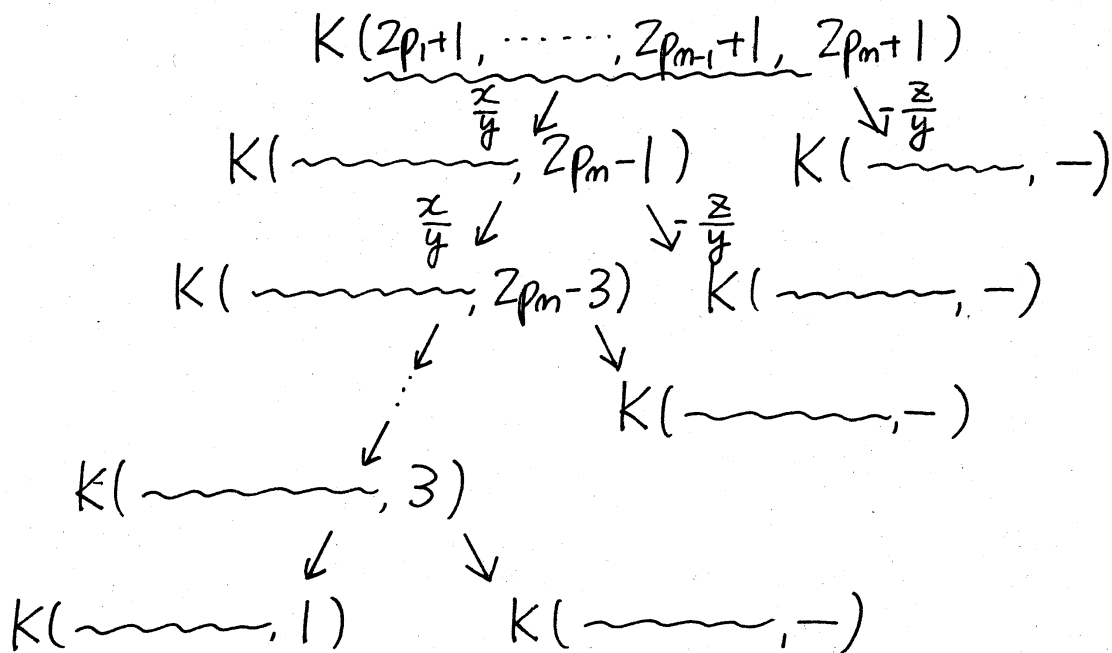 K(2p₁+1, ……, 2pₙ₋₁+1, 2pₙ+1)
x/y -z/y
K( ~~~~~, 2pₙ-1) K( ~~~~~, -)
x/y -z/y
K( ~~~~~, 2pₙ-3) K( ~~~~~, -)
K( ~~~~~, -)
K( ~~~~~, 3)
K( ~~~~~, 1) K( ~~~~~, -)